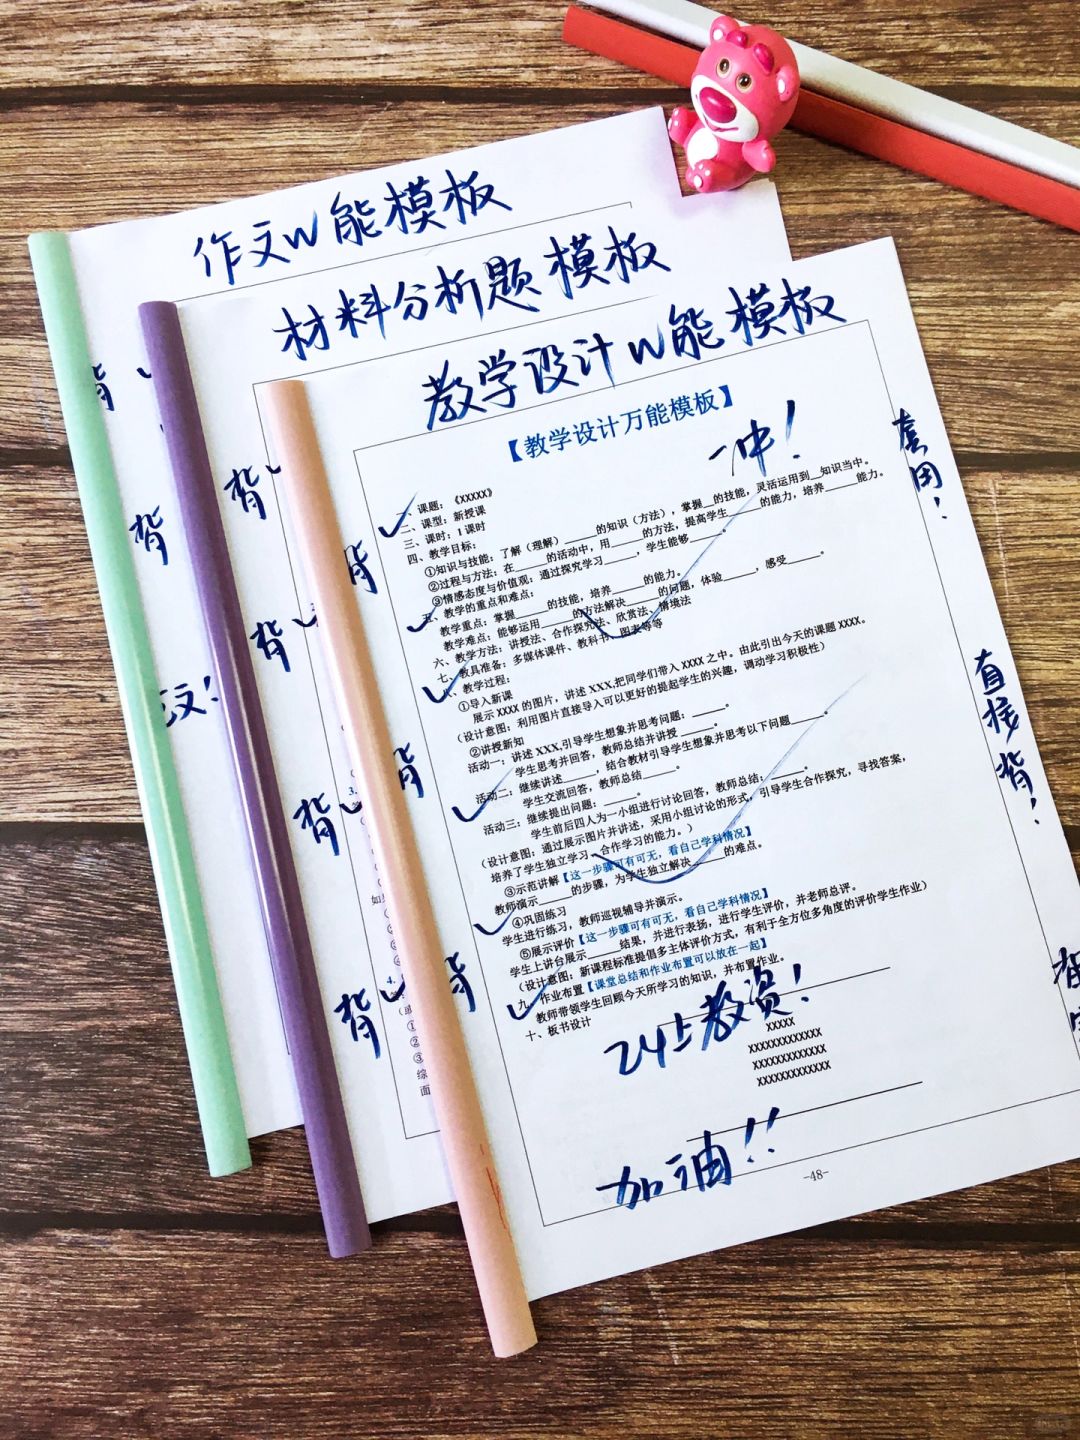 作文W能模板
材料分析题模板
教学设计W能模板
【教学设计万能模板】
一冲！
套用！
一、课题：《XXXXX》
二、课型：新授课
三、课时：1课时
四、教学目标：
①知识与技能：了解（理解）______的知识（方法），掌握__的技能，灵活运用到__知识当中。
②过程与方法：在______的活动中，用______的方法，提高学生______的能力，培养______能力。
③情感态度与价值观：通过探究学习______，学生能够______。
五、教学的重点和难点：
教学重点：掌握______的技能，培养______的能力。
教学难点：能够运用______的方法解决______的问题，体验______，感受______。
六、教学方法：讲授法、合作探究法、欣赏法、情境法
七、教具准备：多媒体课件、教科书、图表等等
八、教学过程：
①导入新课
展示XXXX的图片，讲述XXX,把同学们带入XXXX之中。由此引出今天的课题XXXX。
（设计意图：利用图片直接导入可以更好的提起学生的兴趣，调动学习积极性）
②讲授新知
活动一：讲述XXX,引导学生想象并思考问题：______。
学生思考并回答，教师总结并讲授______。
活动二：继续讲述______，结合教材引导学生想象并思考以下问题______。
学生交流回答，教师总结______。
活动三：继续提出问题：______。
学生前后四人为一小组进行讨论回答，教师总结：______。
（设计意图：通过展示图片并讲述，采用小组讨论的形式，引导学生合作探究，寻找答案，
培养了学生独立学习、合作学习的能力。）
③示范讲解【这一步骤可有可无，看自己学科情况】
教师演示______的步骤，为学生独立解决______的难点。
④巩固练习
学生进行练习，教师巡视辅导并演示。
⑤展示评价【这一步骤可有可无，看自己学科情况】
学生上讲台展示______结果，并进行表扬，进行学生评价，并老师总评。
（设计意图：新课程标准提倡多主体评价方式，有利于全方位多角度的评价学生作业）
九、作业布置【课堂总结和作业布置可以放在一起】
教师带领学生回顾今天所学习的知识，并布置作业。
十、板书设计
XXXXX
XXXXXXXXXXXXX
XXXXXXXXXXXXX
XXXXXXXXXXXXX
24上教资！
加油！！
直接背！
-48-
背
背
背
背
背
背
背
背
背
3.
4.
①
②
③
综
面